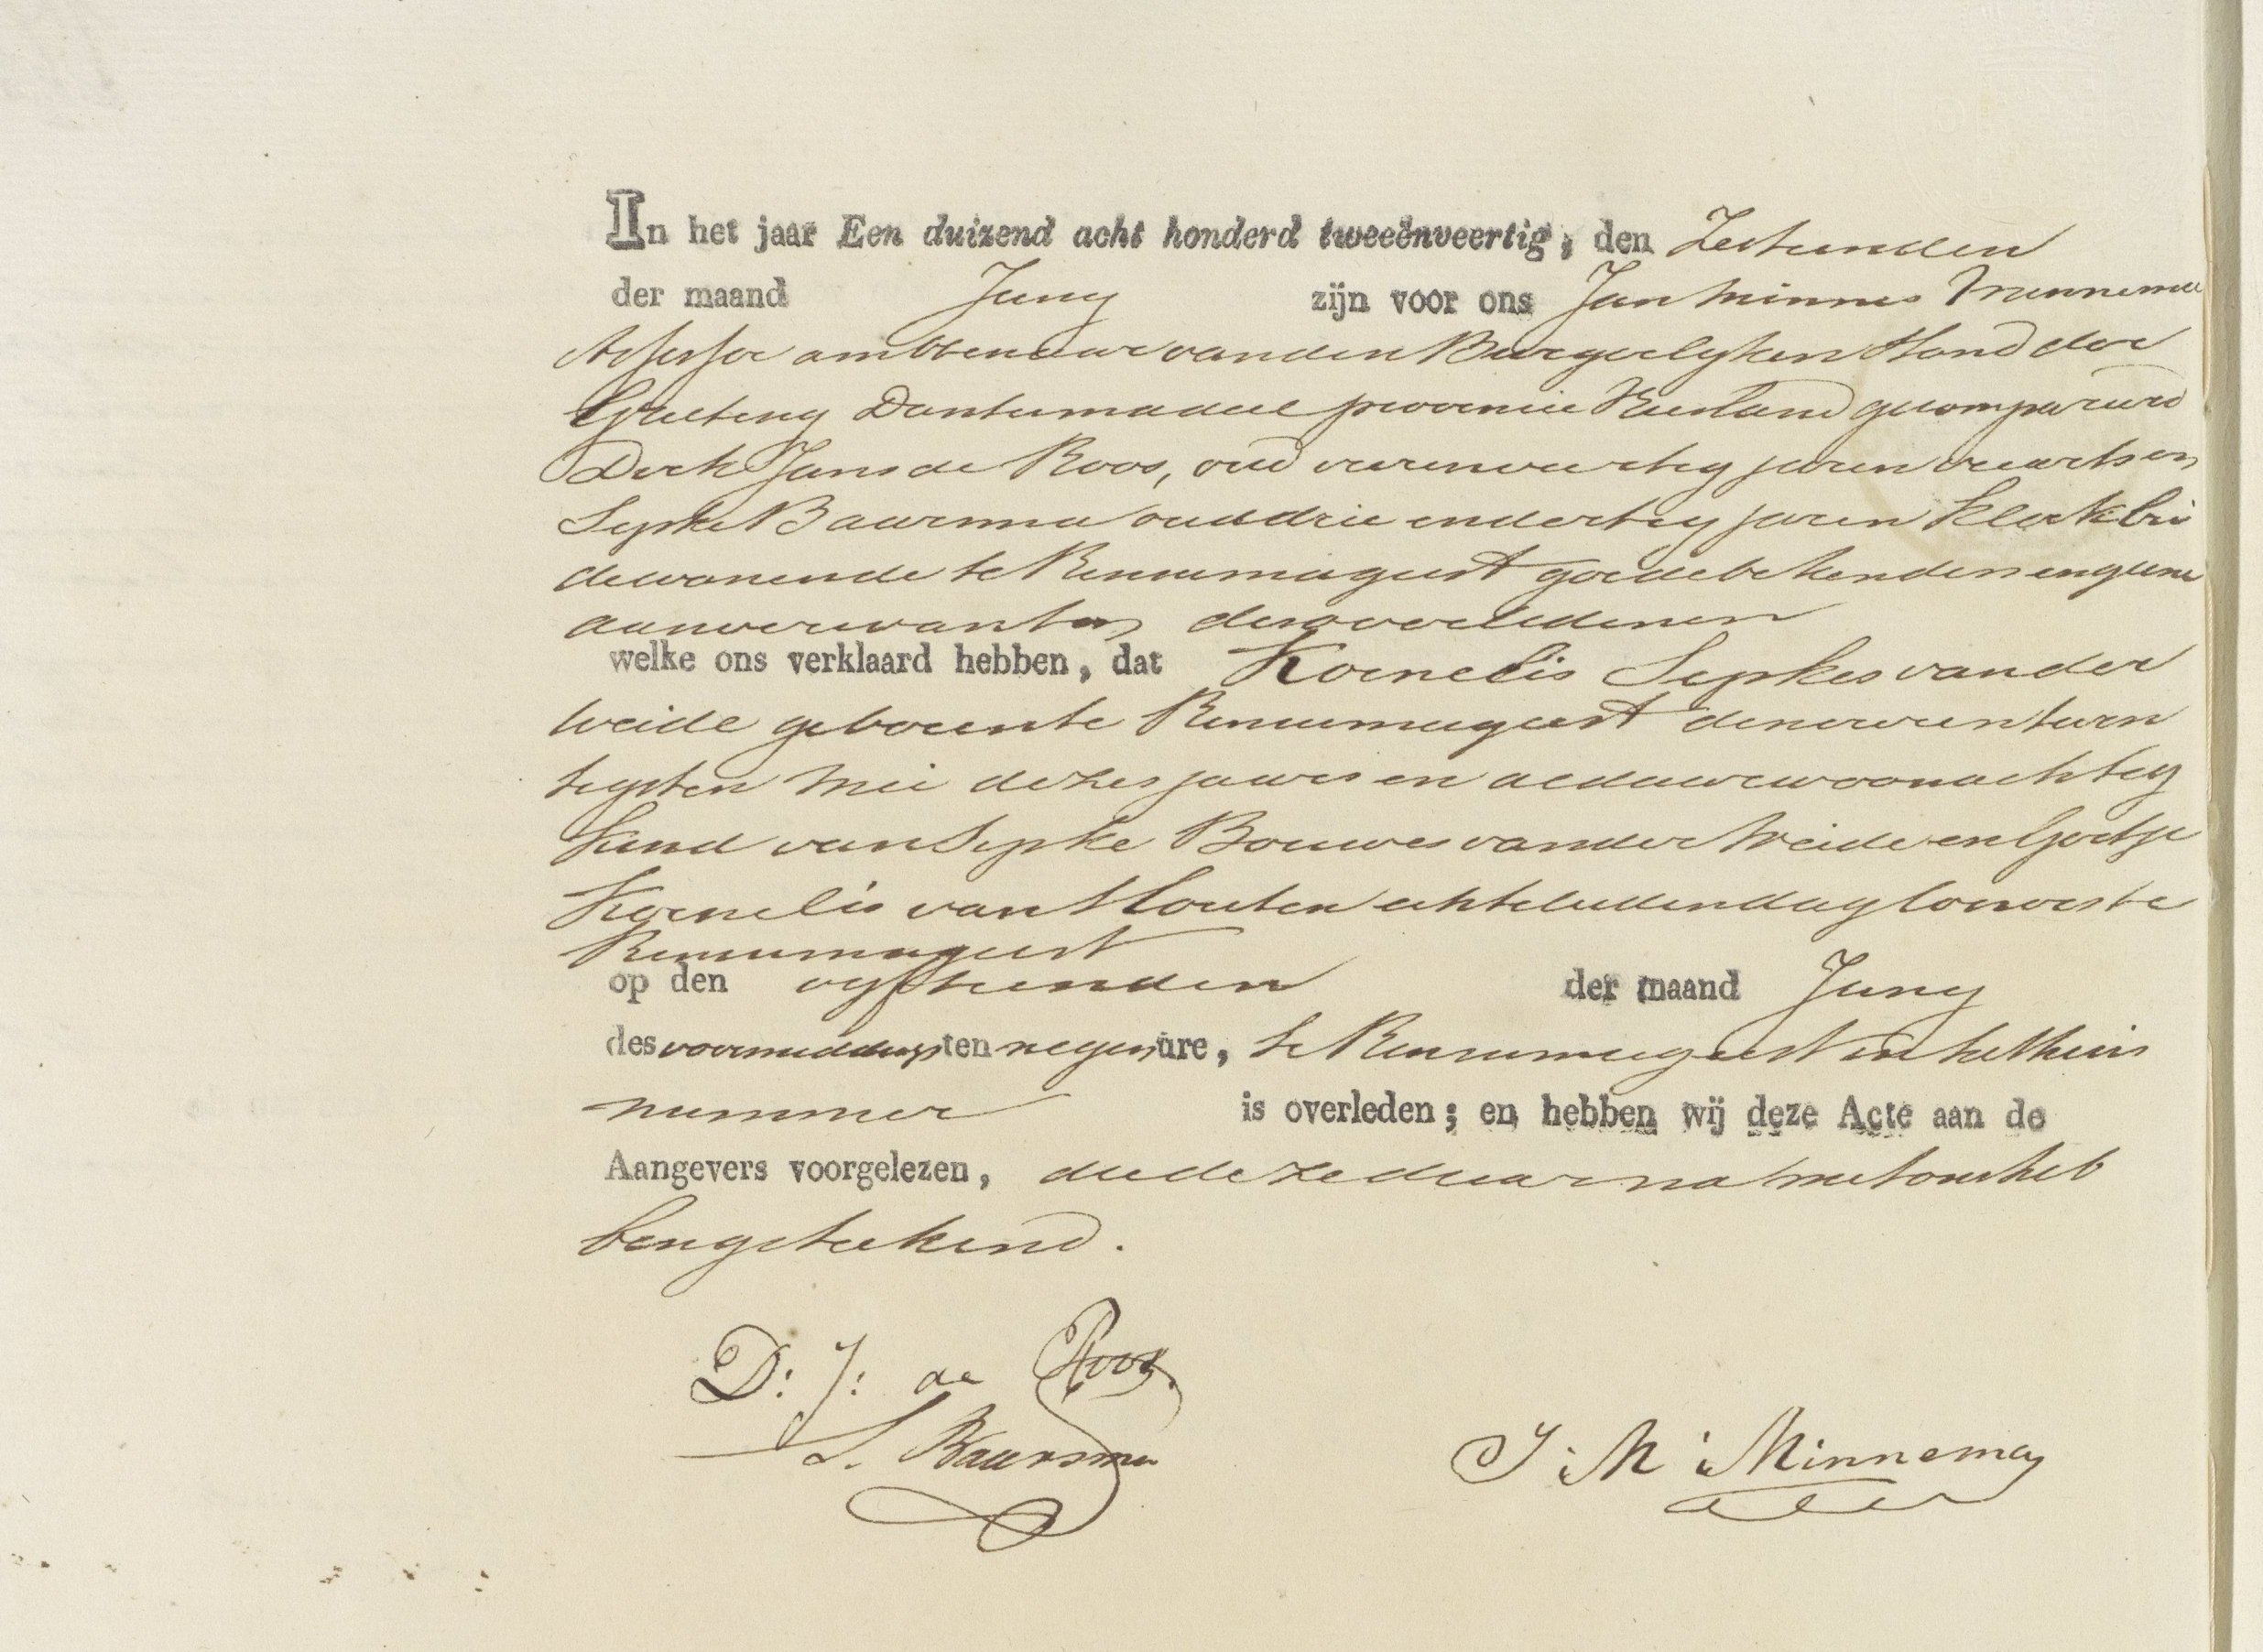 In het jaar Een duizend acht honderd tweeënveertig, den Zestienden
der maand Juny zijn voor ons Jan Minnes Minnema
Assessor ambtenaar van den Burgerlyken Stand der
Grieteny Dantumadeel provincie Vriesland gecompareerd
Dirk Jans de Roos, oud vierenveertig jaren en
Sipke Baarsma oud drie endertig jaren klerk bei
de wonende te Rinsumageest goede bekenden en geene
aanverwanten des overledenen
welke ons verklaard hebben, dat Kornelis Sipkes van der
Weide geboren te Rinsumageest den twin
tigsten Mei dezes jaars en aldaar woonachtig
kind van Sipke Bouwes van der Weide en
Kornelis van Houten echtelieden dagloners te
Rinsumageest
op den vyftienden der maand Juny
des voormiddags ten negen ure, te Rinsumageest in het huis
nummer is overleden; en hebben wij deze Acte aan de
Aangevers voorgelezen, die deze daarna met ons heb
ben geteekend.
D: J: de Roos
S. Baarsma
J: M: Minnema